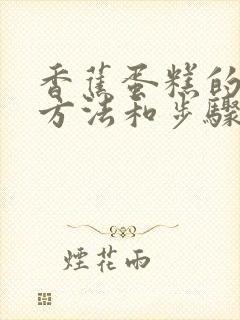 香蕉蛋糕的
方法和步骤
煙花雨